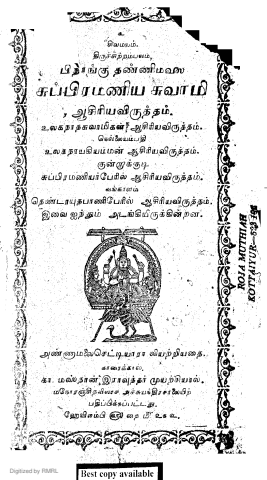 உ
சிவமயம்.
திருச்சிற்றம்பலம்,
பிரான்கு தண்ணிமலை
சுப்பிரமணிய சுவாமி
ஆசிரியவிருத்தம்.
உலகநாதசுவாமிகள் ஆசிரியவிருத்தம்.
உலகநாயகியம்மன் ஆசிரியவிருத்தம்.
குன்றுக்குடி
சுப்பிரமணியர்பேரில் ஆசிரியவிருத்தம்.
தெண்டாயுதபாணிபேரில் ஆசிரியவிருத்தம்.
இவை ஐந்தும் அடங்கியிருக்கின்றன.
அண்ணாமலைசெட்டியாரா லியற்றியதை
காரைக்கால்
கா. மஸ்தான் இராவுத்தர் முயற்சியால்.
பதிப்பிக்கப்பட்டது.
ROJA MUTHIAH
KOTTAIYUR
Digitized by RMRL
Best copy available